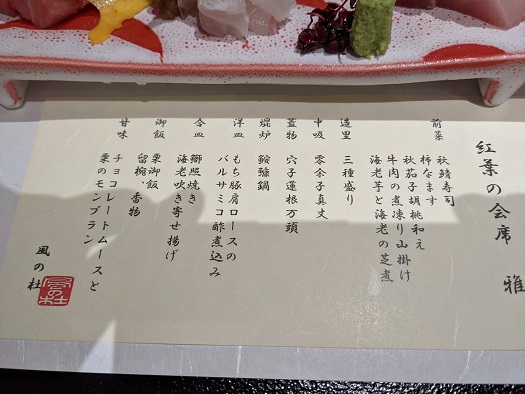 紅葉の会席 雅
前菜
秋鯖寿司
柿なます
秋茄子胡桃和え
牛肉の煮凍り山掛け
海老芋と海老の芝煮
造里
三種盛り
中吸
零余子真丈
蓋物
穴子蓮根万頭
焜炉
鮟鱇鍋
洋皿
もち豚肩ロースの
バルサミコ酢煮込み
合皿
鰤照焼き
海老吹き寄せ揚げ
御飯
栗御飯
留椀、香物
甘味
チョコレートムースと
栗のモンブラン
風の杜
風の杜